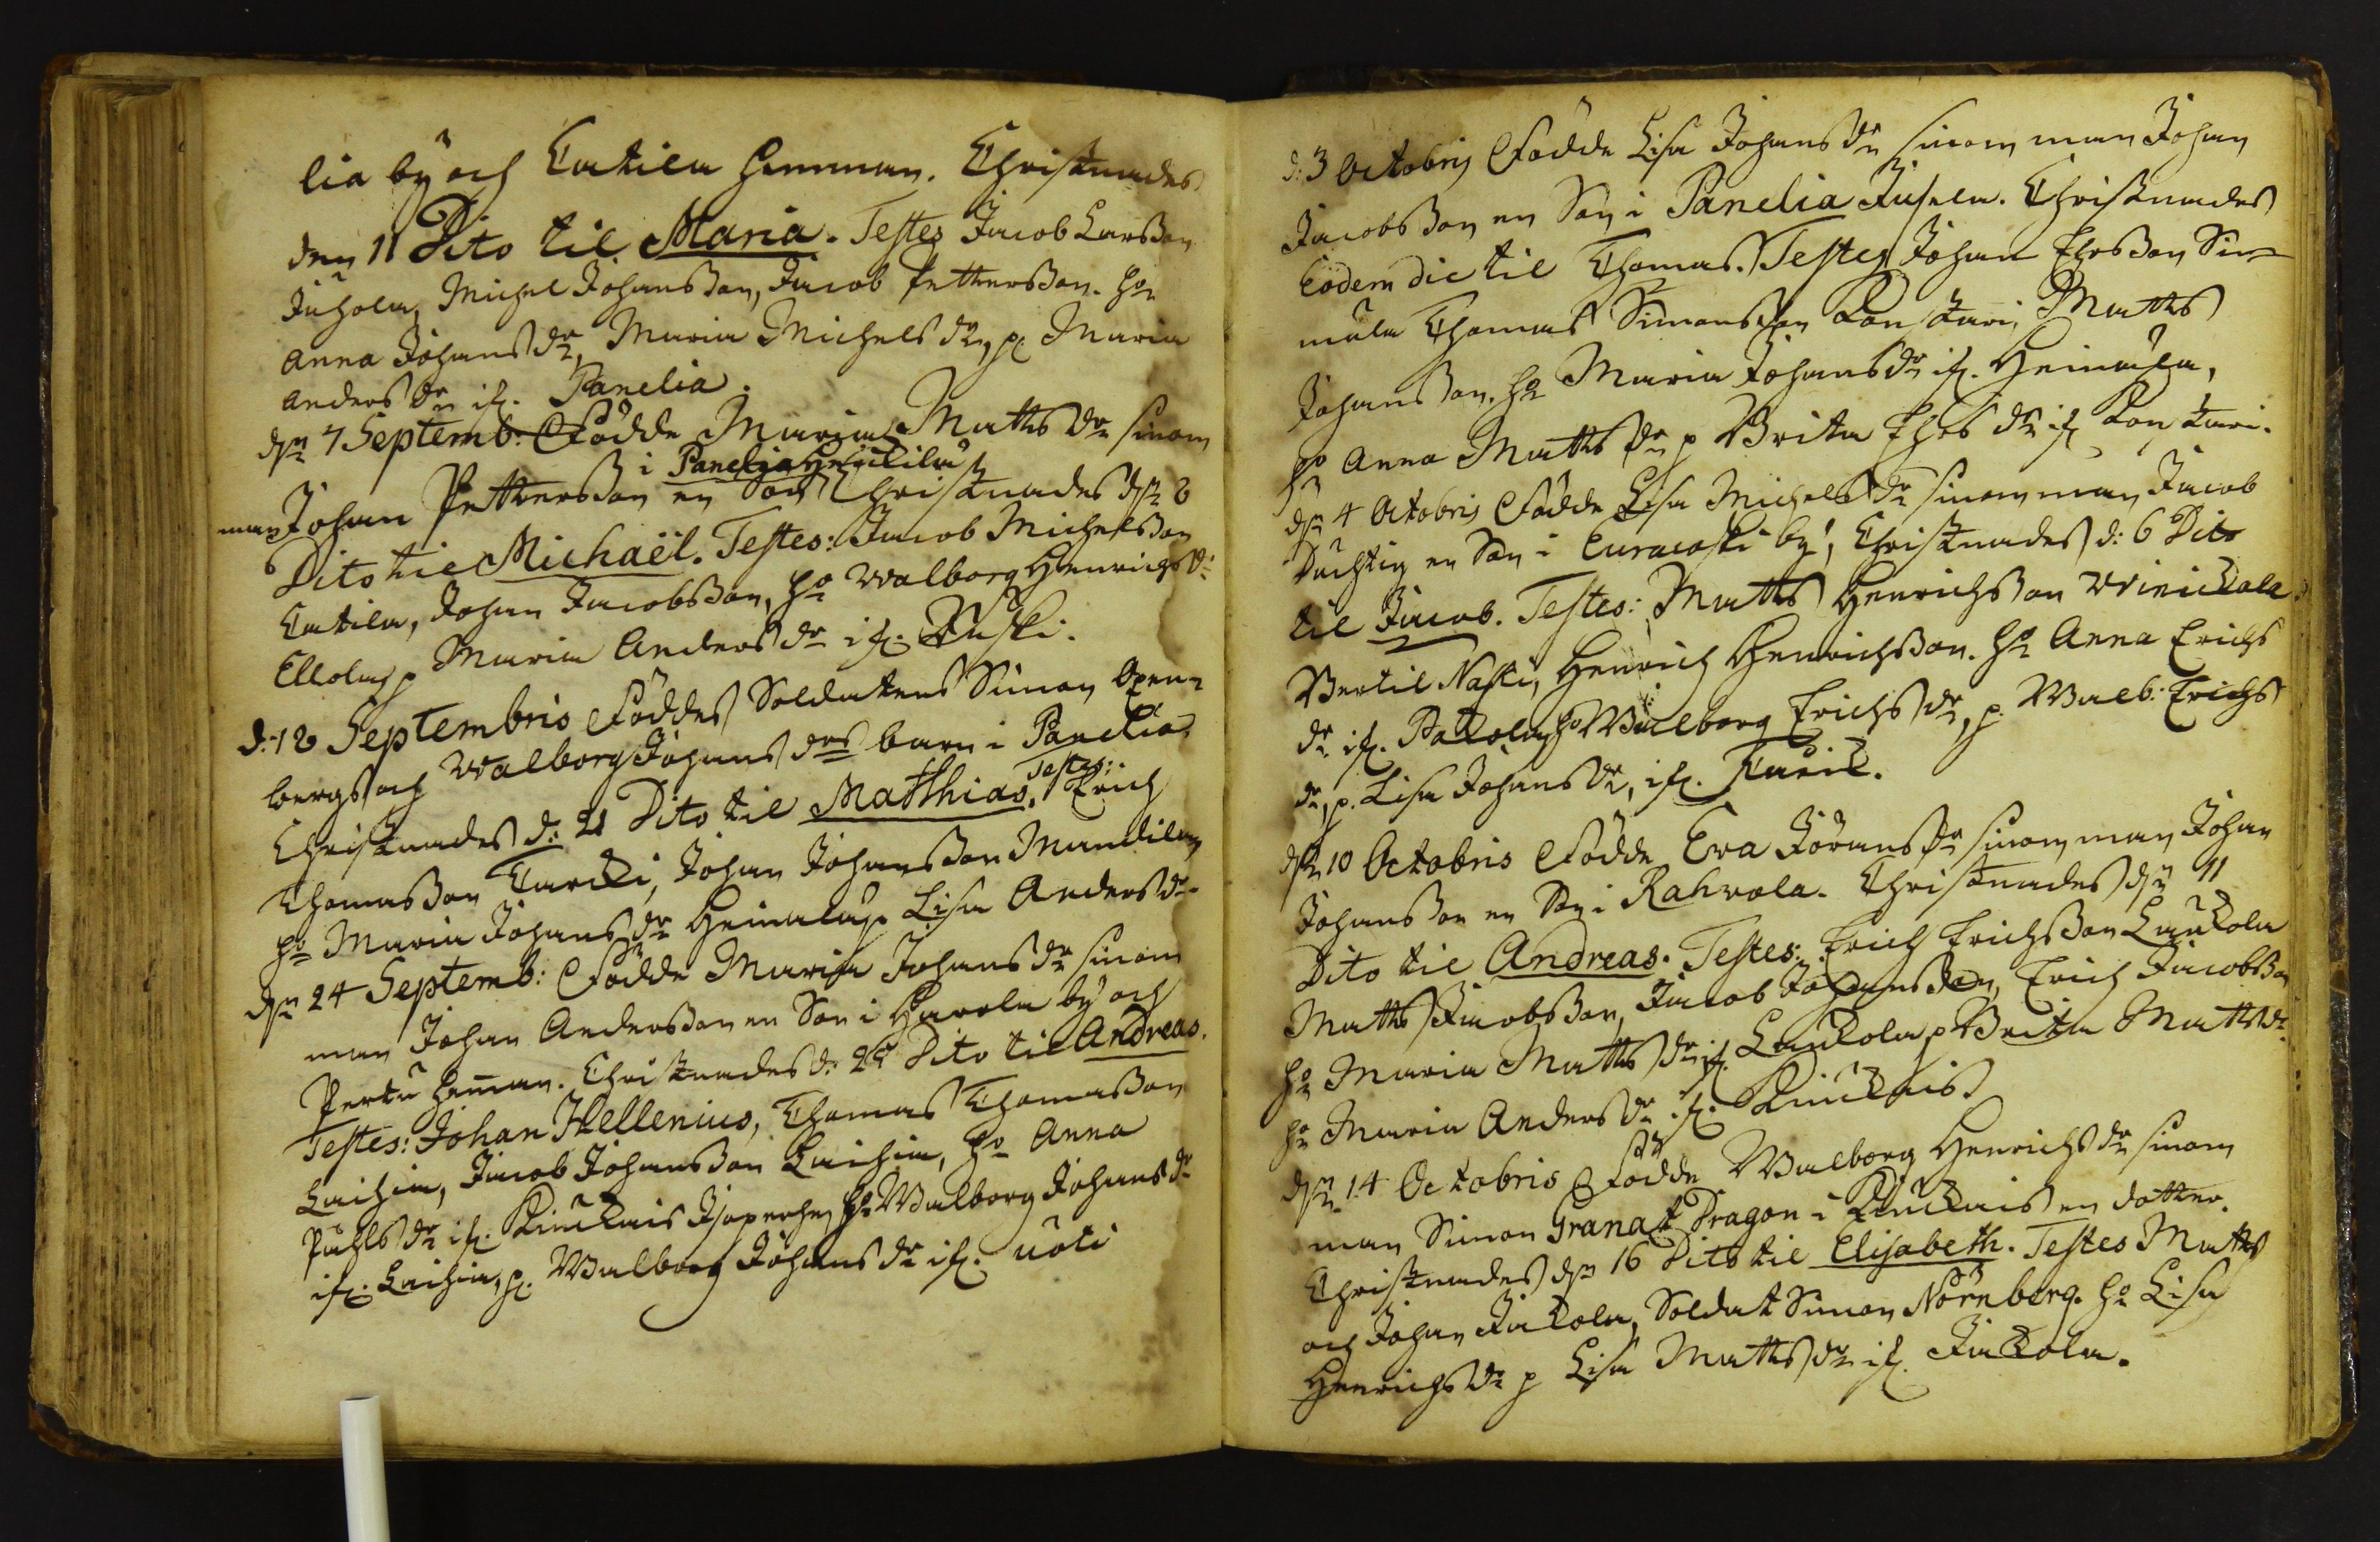 lia bÿ och Catila hemman. Christnades
den 11 Dito til Maria. Testes Jacob Larsson
Juhola, Michel Johansson, Jacob Pettersson. ho
Anna Johansdr, Maria Michelsdr, p. Maria
Andersdr if. Panelia.
den 7 Septemb: Födde Maria Mattsdr sinom
i Panelia
man Johan Pettersson en Son Christnades den 8
Dito til Michaël. Testes: Jacob Michelsson
Catila, Johan Jacobsson, ho Walborg Henrichsdr
Ellola, p Maria Andersdr if.
d: 18 Septembris Föddes Soldatens Simon Ox
bergs och Walborg Johansdrs barn i Panelia
Testes:
Christnades d: 21 Dito til Matthias, Erich
Thomasson Turcki, Johan Johansson Mandila
ho Maria Johansdr Heinala, p Lisa Andersdr
den 24 Septemb: Födde Maria Johansdr sinom
man Johan Andersson en Son i Harola bÿ och
Pertu hemman. Christnades d: 25 Dito til Andreas.
Testes: Johan Hellenius, Thomas Thomasson
Laihia, Jacob Johansson Laihia, ho Anna
Påhlsdr if. Kiuckais ho Walborg Johansdr
if. Laihia, p. Walborg Johansdr if. Uoti
d: 3 Octobris Födde Lisa Johansdr sinom man Johan
Jacobsson en Son i Panelia Christnades
Eodem die til Thomas. Testes Johan Sim
mula Thomas Simonsson Konstari, Matts
Johansson. ho Maria Johansdr if. Heinala,
ho Anna Mattsdr p Brita if Konstari.
den 4 Octobris Födde Lisa Michelsdr sinom man Jacob
Duchtig en Son i Euracoski bÿ, Christnades d: 6 Dito
til Jacob. Testes: Matts Henrichsson
Bertil Naski, Henrich Henrichsson. ho Anna Erichs
dr if. ho Walborg Erichsdr, p. Walb: Erichs
dr, p. Lisa Johansdr, if.
den 10 Octobris Födde Eva Jöransdr sinom man Johan
Johansson en Son i Rahvola. Christnades den 11
Dito til Andreas. Testes: Erich Erichsson Lauckola
Matts Jacobsson, Jacob Johansson, Erich Jacobsson
ho Maria Mattsdr if. Lauckola, p Brita Mattsdr
ho Maria Andersdr if. Kiuckais
den 14 Octobris Födde Walborg Henrichsdr sinom
man Simon Granat Dragon i Kiuckais en dotter.
Christnades den 16 Dito til Elisabeth. Testes Matts
och Johan Jackola, Soldat Simon Nörnberg. ho Lisa
Henrichsdr p Lisa Mattsdr if. Jackola.